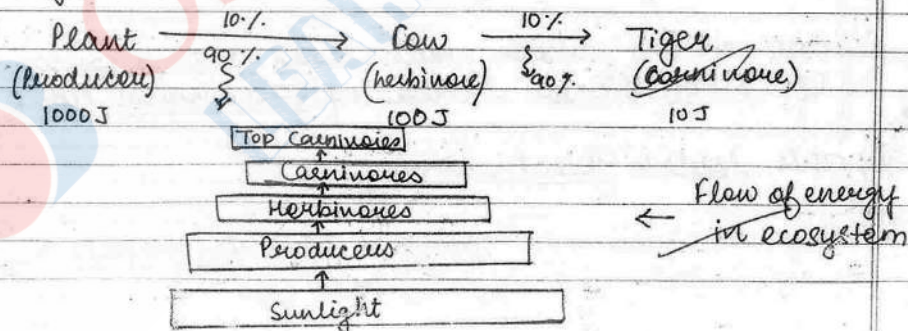 Plant 10% Cow 10% Tiger
(Producer) 90% (herbivore) 90% (carnivore)
1000 J 100 J 10 J
Top Carnivores
Carnivores
Herbivores
Producers
Sunlight
← Flow of energy
in ecosystem
LEA